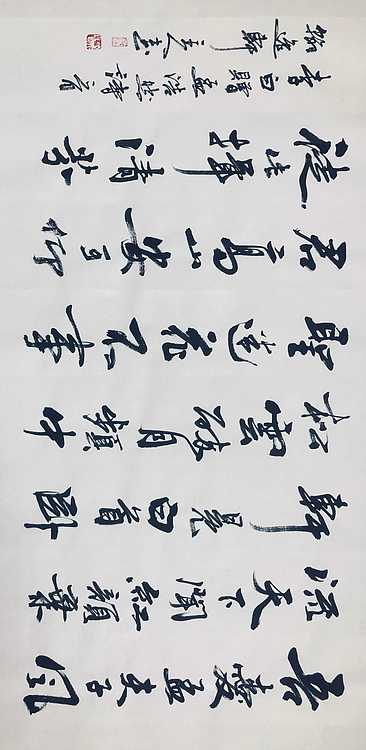 吾愛孟夫子風
流天下聞紅顏棄
軒冕白首臥
松雲醉月頻中
聖迷花不事
君高山安可仰
徒此揖清芬
李白贈孟浩然詩首